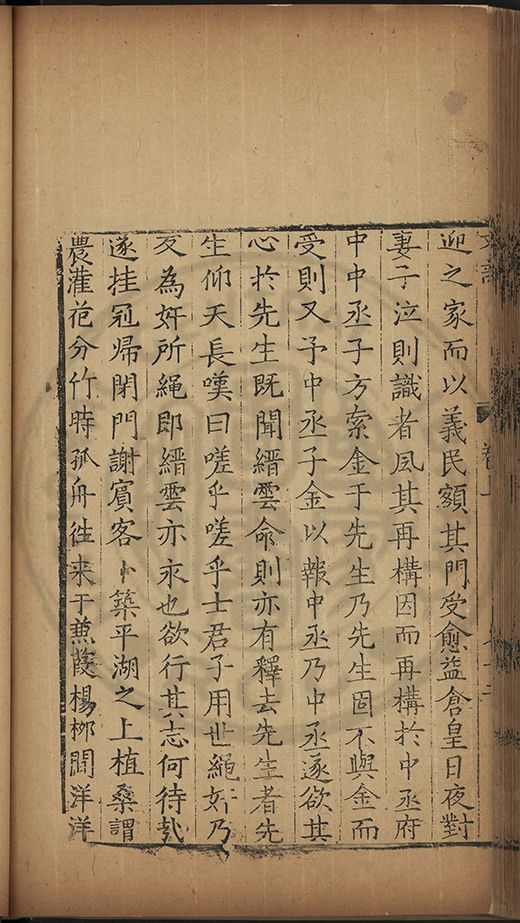 迎之家而以義民額其門受愈益倉皇日夜對
妻子泣則識者風其再構因而再構於中丞府
中中丞子方索金于先生乃先生固不與金而
受則又予中丞子金以報中丞乃中丞遂欲其
心於先生既聞縉雲命則亦有釋去先生者先
生仰天長嘆曰嗟乎嗟乎士君子用世繩奸乃
反為奸所繩即縉雲亦永也欲行其志何待哉
遂挂冠歸閉門謝賓客卜築平湖之上植桑謂
農灌花分竹時孤舟往来于蒹葭楊栁間洋洋